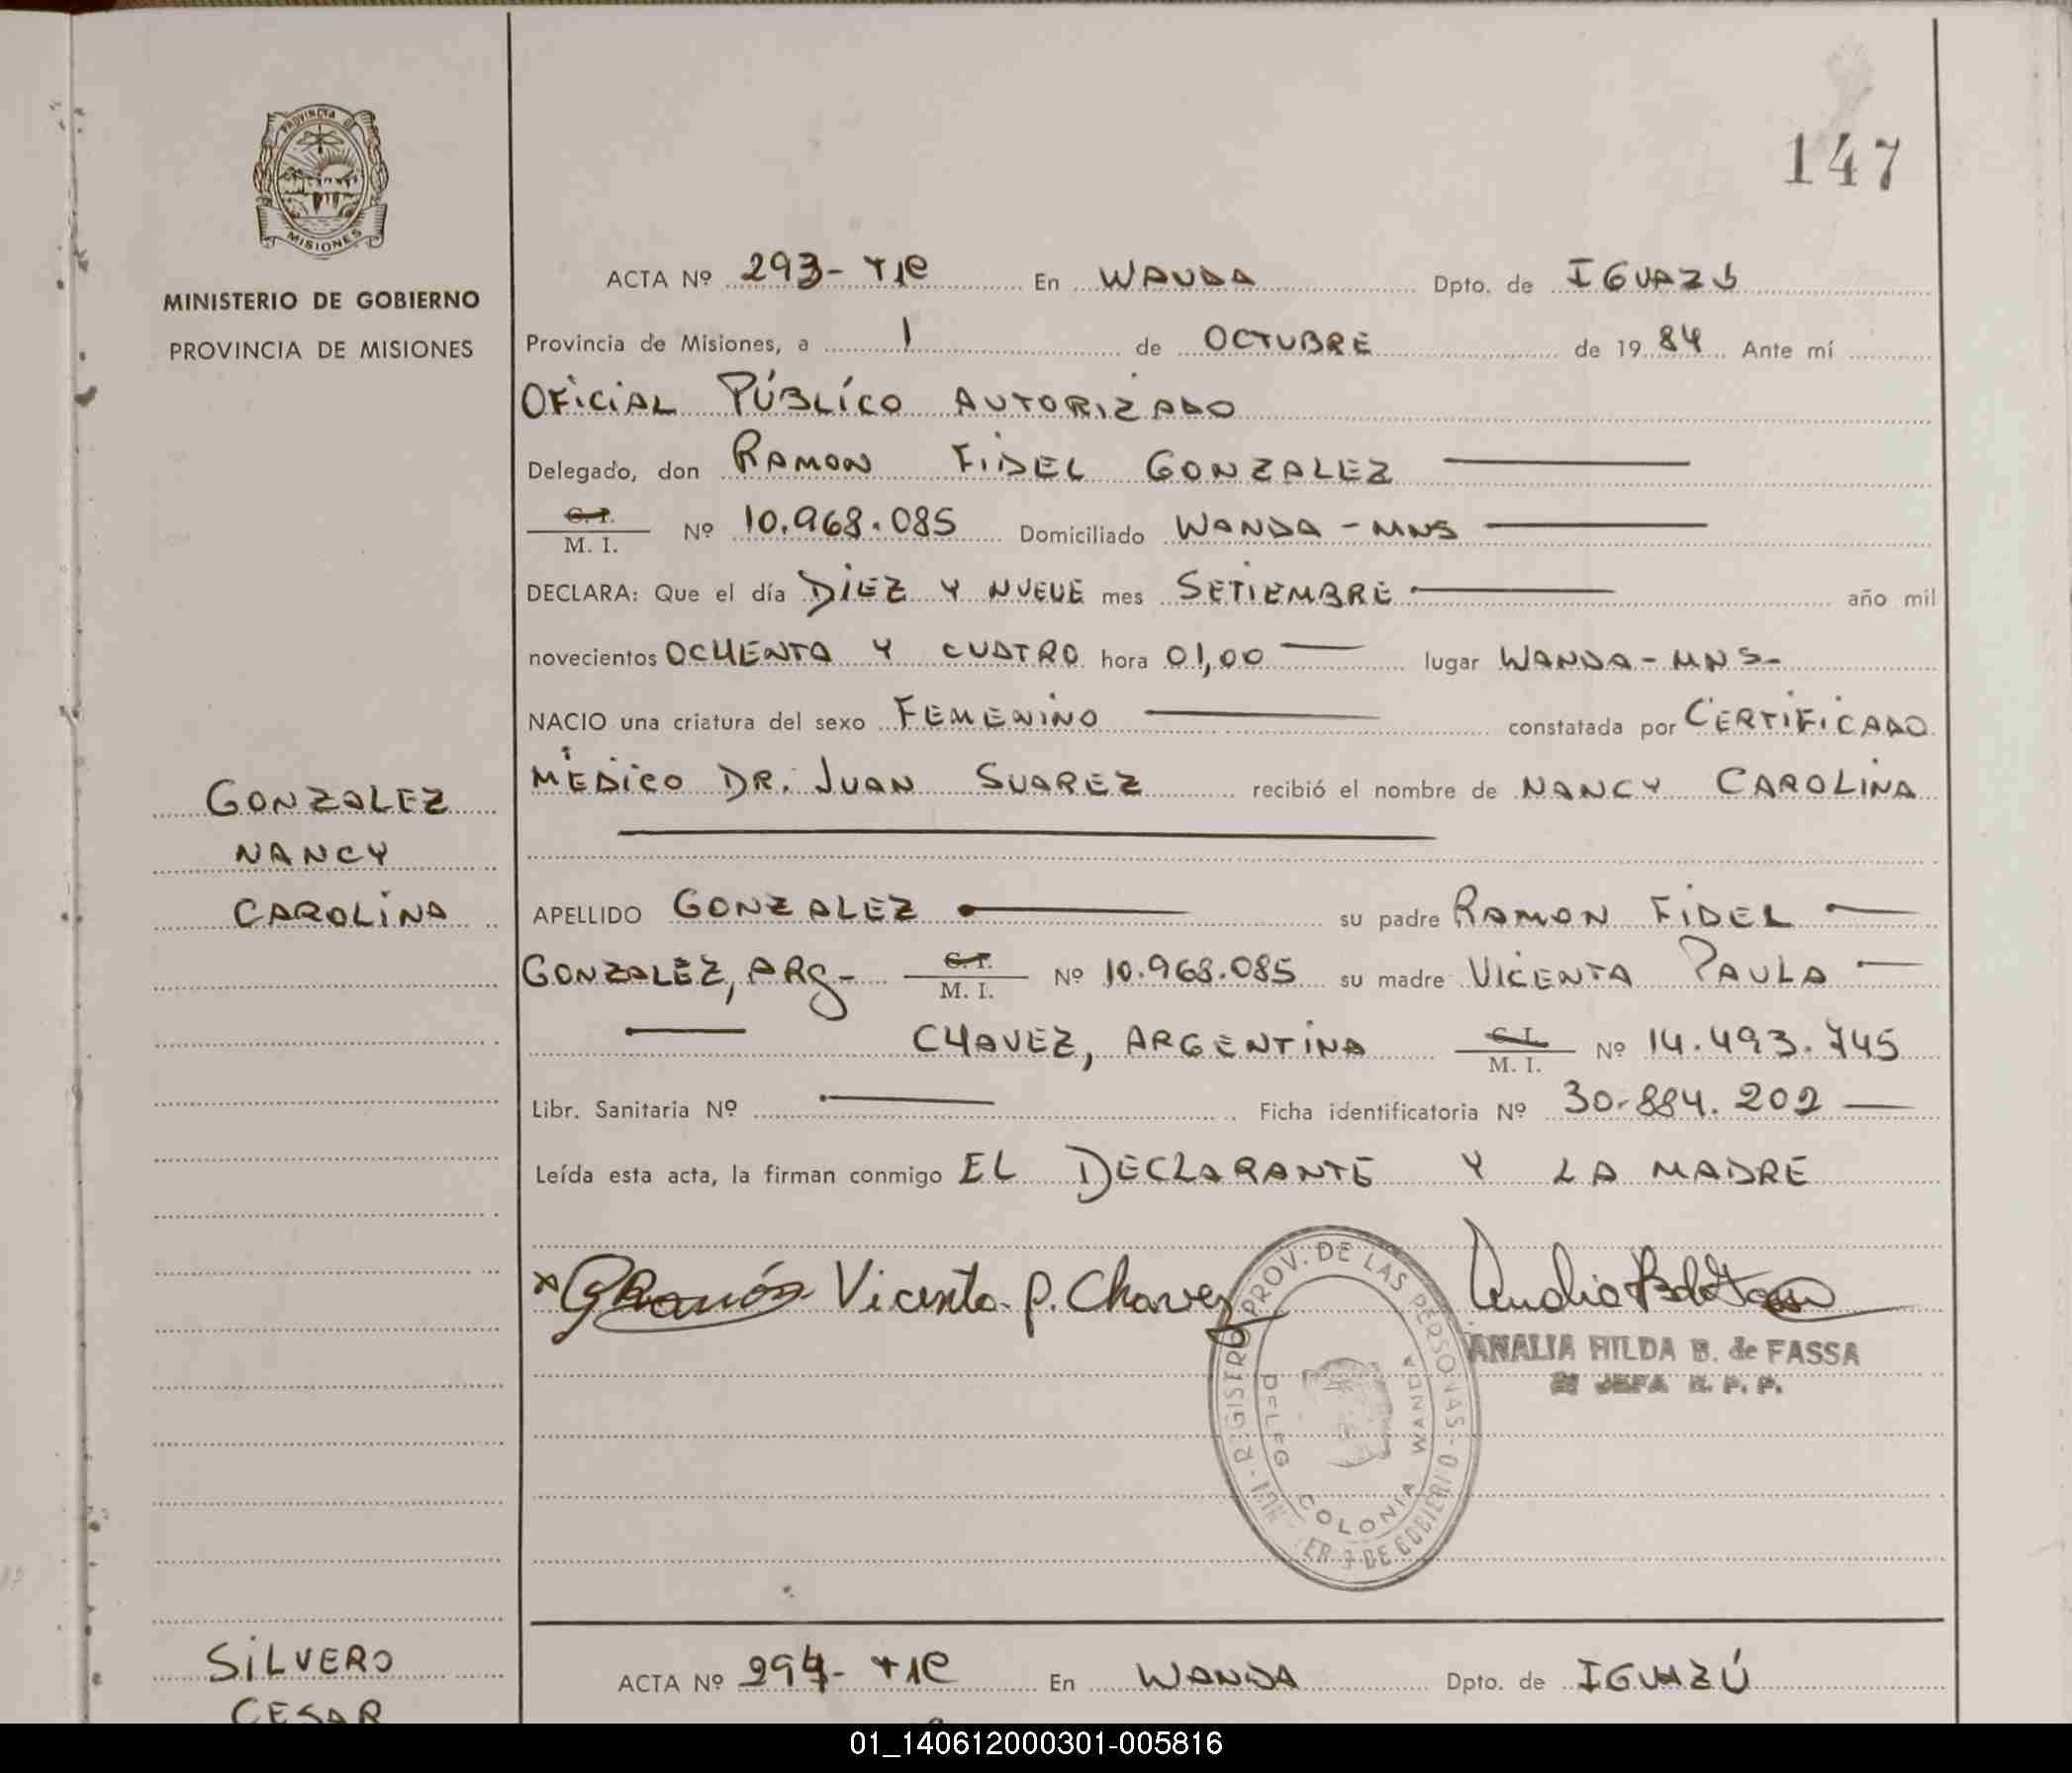 PROVINCIA DE
MISIONES
MINISTERIO DE GOBIERNO
PROVINCIA DE MISIONES
147
ACTA Nº 293- T1C En WANDA Dpto. de IGUAZÚ
Provincia de Misiones, a 1 de OCTUBRE de 1984 Ante mí
OFICIAL PÚBLICO AUTORIZADO
Delegado, don RAMON FIDEL GONZALEZ
C. I.
M. I. Nº 10.968.085 Domiciliado WANDA - MNS
DECLARA: Que el día DIEZ Y NUEVE mes SETIEMBRE año mil
novecientos OCHENTA Y CUATRO hora 01,00 lugar WANDA - MNS-
NACIO una criatura del sexo FEMENINO constatada por CERTIFICADO
MÉDICO DR. JUAN SUAREZ recibió el nombre de NANCY CAROLINA
GONZALEZ
NANCY
CAROLINA
APELLIDO GONZALEZ su padre RAMON FIDEL
GONZALEZ, ARG- C. I.
M. I. Nº 10.968.085 su madre VICENTA PAULA
CHAVEZ, ARGENTINA C. I.
M. I. Nº 14.493.745
Libr. Sanitaria Nº Ficha identificatoria Nº 30.884.202
Leída esta acta, la firman conmigo EL DECLARANTE Y LA MADRE
Vicenta P. Chavez
REGISTRO PROV. DE LAS PERSONAS
DE GOBIERNO
DELEG
COLONIA WANDA
ANALIA HILDA B. de FASSA
JEFA R. P. P.
SILVERO
CESAR
ACTA Nº 294- T1C En WANDA Dpto. de IGUAZÚ
01_140612000301-005816